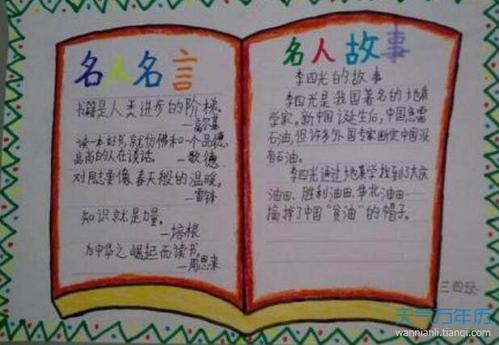 名人名言
书籍是人类进步的阶梯。
—高尔基
读一本好书,就仿佛和一个品德
高尚的人在谈话。—歌德
对同志要像春天般的温暖。
—雷锋
知识就是力量。
—培根
为中华之崛起而读书。
—周恩来
名人故事
李四光的故事
李四光是我国著名的地质
学家。新中国诞生后,中国急需
石油,但许多外国专家断定中国没
有石油。
李四光通过地质学找到了大庆
油田、胜利油田、华北油田
摘掉了中国“贫油”的帽子。
三四班
天气万年历
wannianli.tianqi.com